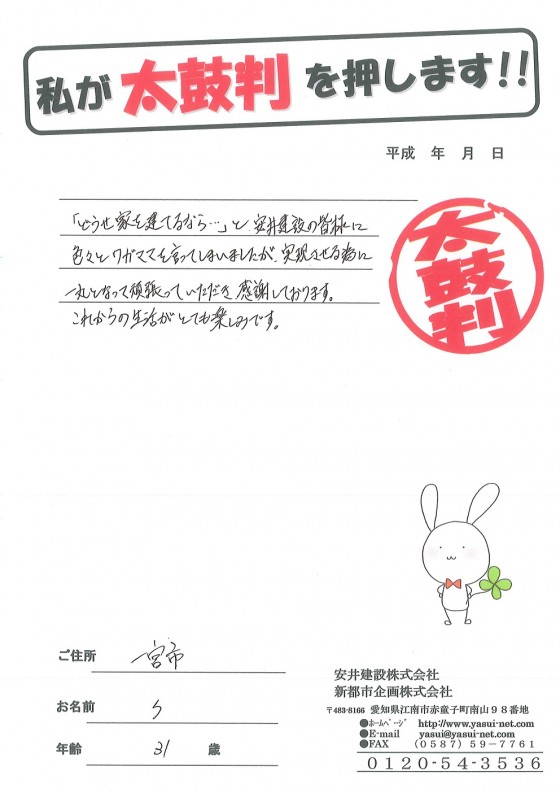 私が太鼓判を押します!!
平成　年　月　日
「どうせ家を建てるなら…」と、安井建設の皆様に
色々とワガママを言ってしまいましたが、実現させる為に
一丸となって頑張っていただき感謝しております。
これからの生活がとても楽しみです。
太鼓判
ご住所　一宮市
お名前
年齢　31　歳
安井建設株式会社
新都市企画株式会社
〒483-8166　愛知県江南市赤童子町南山９８番地
●ﾎｰﾑﾍﾟｰｼﾞ　http://www.yasui-net.com
●E-mail　yasui@yasui-net.com
●FAX　(０５８７)５９-７７６１
０１２０-５４-３５３６